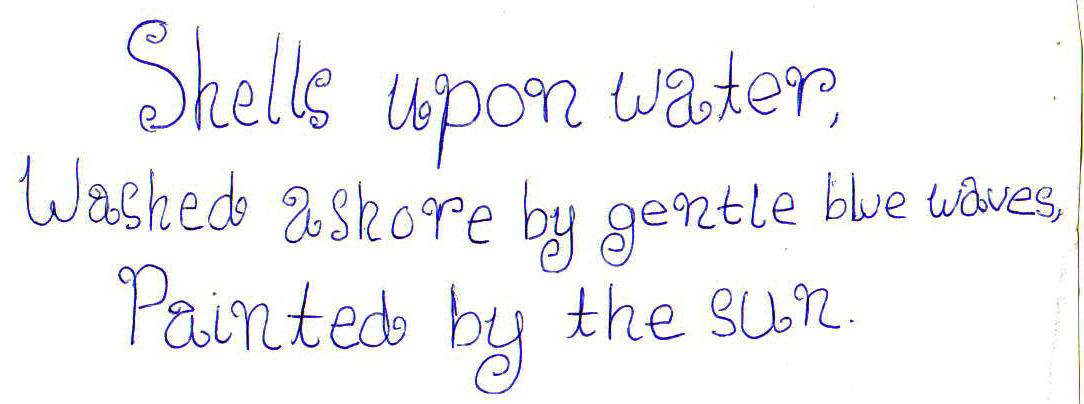 Shells upon water,
Washed ashore by gentle blue waves,
Painted by the sun.